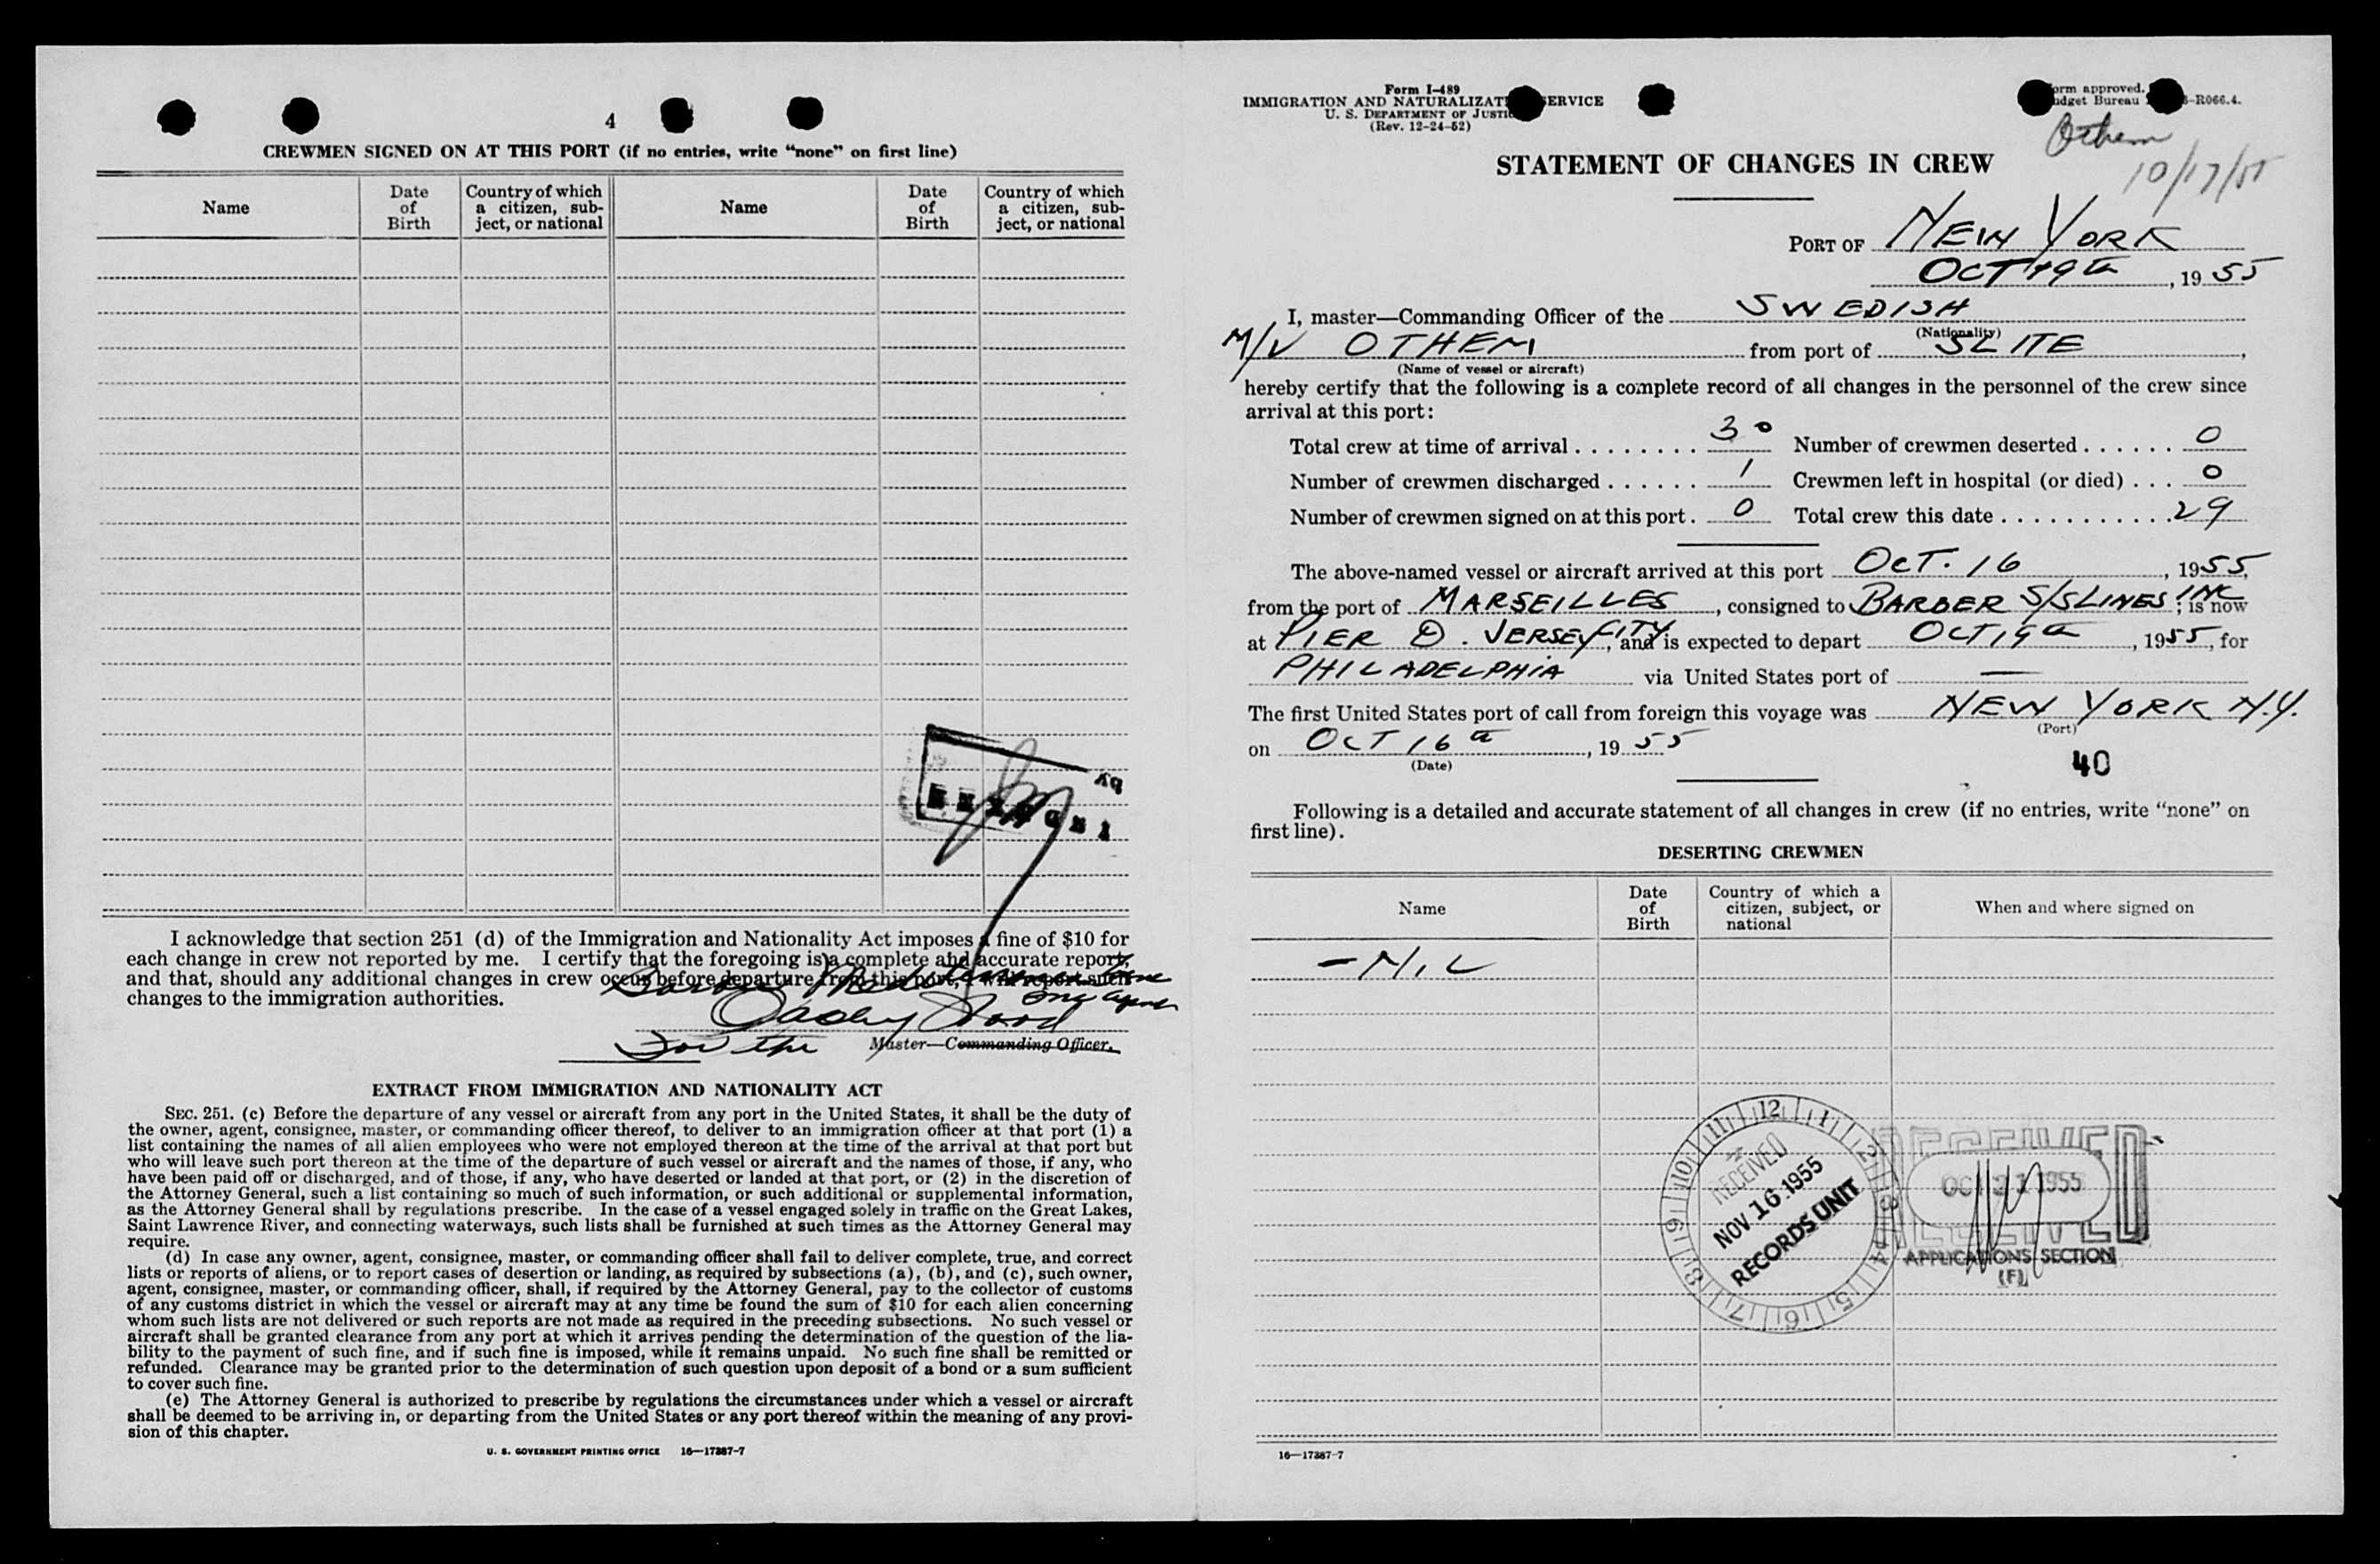 4
CREWMEN SIGNED ON AT THIS PORT (if no entries, write “none” on first line)
Name
Date of Birth
Country of which a citizen, subject, or national
Name
Date of Birth
Country of which a citizen, sub-ject, or national
I acknowledge that section 251 (d) of the Immigration and Nationality Act imposes a fine of $10 for
each change in crew not reported by me. I certify that the foregoing is a complete and accurate report,
and that, should any additional changes in crew occur before departure from this port, I will report such
changes to the immigration authorities.
For the Master—Commanding Officer.
EXTRACT FROM IMMIGRATION AND NATIONALITY ACT
SEC. 251. (c) Before the departure of any vessel or aircraft from any port in the United States, it shall be the duty of
the owner, agent, consignee, master, or commanding officer thereof, to deliver to an immigration officer at that port (1) a
list containing the names of all alien employees who were not employed thereon at the time of the arrival at that port but
who will leave such port thereon at the time of the departure of such vessel or aircraft and the names of those, if any, who
have been paid off or discharged, and of those, if any, who have deserted or landed at that port, or (2) in the discretion of
the Attorney General, such a list containing so much of such information, or such additional or supplemental information,
as the Attorney General shall by regulations prescribe. In the case of a vessel engaged solely in traffic on the Great Lakes,
Saint Lawrence River, and connecting waterways, such lists shall be furnished at such times as the Attorney General may
require.
(d) In case any owner, agent, consignee, master, or commanding officer shall fail to deliver complete, true, and correct
lists or reports of aliens, or to report cases of desertion or landing, as required by subsections (a), (b), and (c), such owner,
agent, consignee, master, or commanding officer, shall, if required by the Attorney General, pay to the collector of customs
of any customs district in which the vessel or aircraft may at any time be found the sum of $10 for each alien concerning
whom such lists are not delivered or such reports are not made as required in the preceding subsections. No such vessel or
aircraft shall be granted clearance from any port at which it arrives pending the determination of the question of the lia-
bility to the payment of such fine, and if such fine is imposed, while it remains unpaid. No such fine shall be remitted or
refunded. Clearance may be granted prior to the determination of such question upon deposit of a bond or a sum sufficient
to cover such fine.
(e) The Attorney General is authorized to prescribe by regulations the circumstances under which a vessel or aircraft
shall be deemed to be arriving in, or departing from the United States or any port thereof within the meaning of any provi-
sion of this chapter.
U. S. GOVERNMENT PRINTING OFFICE 16—17387-7
Form I-489
IMMIGRATION AND NATURALIZAT SERVICE
U. S. DEPARTMENT OF JUSTIC
(Rev. 12-24-52)
orm approved.
udget Bureau -R066.4.
Othem
10/17/55
STATEMENT OF CHANGES IN CREW
PORT OF NEW YORK
OCT 19th, 1955
I, master—Commanding Officer of the SWEDISH
(Nationality)
M/V OTHEM from port of SLITE,
(Name of vessel or aircraft)
hereby certify that the following is a complete record of all changes in the personnel of the crew since
arrival at this port:
Total crew at time of arrival 30 Number of crewmen deserted 0
Number of crewmen discharged 1 Crewmen left in hospital (or died) 0
Number of crewmen signed on at this port 0 Total crew this date 29
The above-named vessel or aircraft arrived at this port OCT. 16, 1955,
from the port of MARSEILLES, consigned to BARBER S/S LINES INC; is now
at PIER D. JERSEY CITY, and is expected to depart OCT 19th, 1955, for
PHILADELPHIA via United States port of —
The first United States port of call from foreign this voyage was NEW YORK N.Y.
(Port)
on OCT 16th, 1955
(Date)
40
Following is a detailed and accurate statement of all changes in crew (if no entries, write “none” on
first line).
DESERTING CREWMEN
Name
Date of Birth
Country of which a citizen, subject, or national
When and where signed on
- NIL
12 1 2 3 4 5 6 7 8 9 10 11
RECEIVED
NOV 16 1955
RECORDS UNIT
RECEIVED
OCT 21 1955
RECEIVED
APPLICATIONS SECTION
(F)
16—17387-7